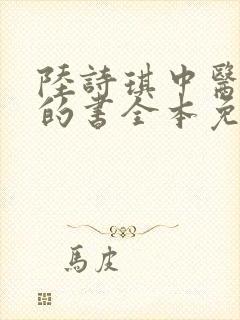 陸詩琪中醫
的書全本免
馬皮